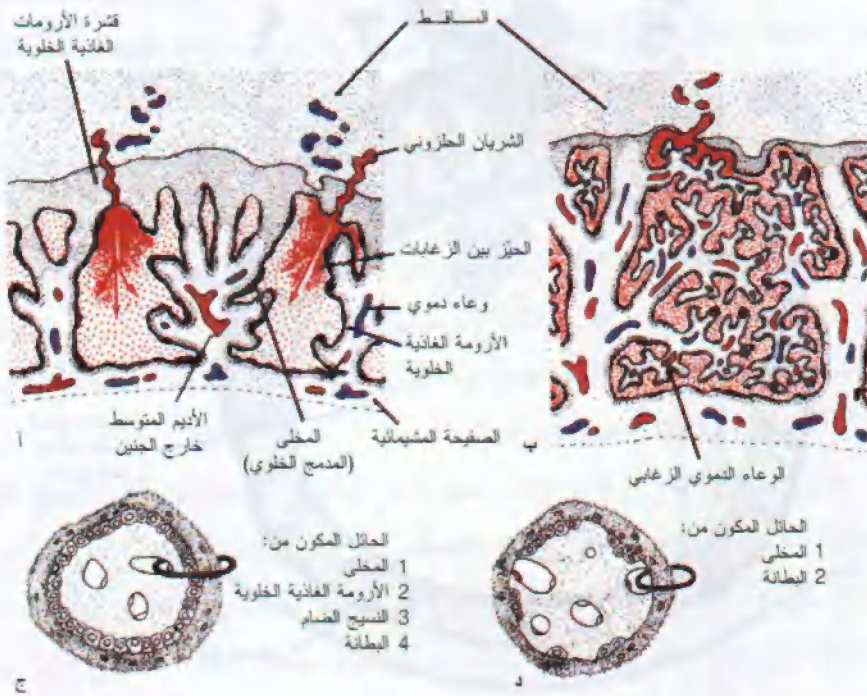 قشرة الأرومات
الغاذية الخلوية
الســاقــط
الشريان الحلزوني
الحيّز بين الزغابات
وعاء دموي
الأرومة الغاذية
الخلوية
الأديم المتوسط
خارج الجنين
المخلى
(المدمج الخلوي)
الصفيحة المشيمائية
أ
ب
الوعاء الدموي الزغابي
الحائل المكون من:
1 المخلى
2 الأرومة الغاذية الخلوية
3 النسيج الضام
4 البطانة
ج
الحائل المكون من:
1 المخلى
2 البطانة
د